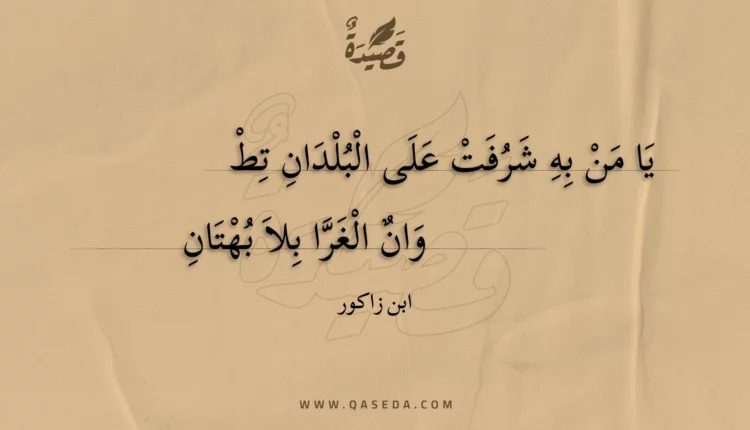 قَصِيدَةٌ
يَا مَنْ بِهِ شَرُفَتْ عَلَى الْبُلْدَانِ تِطْ
وَانٌ الْغَرَّا بِلاَ بُهْتَانِ
ابن زاكور
WWW.QASEDA.COM